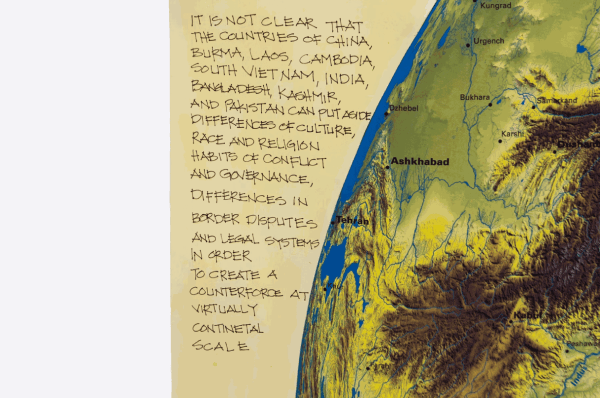 IT IS NOT CLEAR THAT
THE COUNTRIES OF CHINA,
BURMA, LAOS, CAMBODIA,
SOUTH VIETNAM, INDIA,
BANGLADESH, KASHMIR,
AND PAKISTAN CAN PUT ASIDE
DIFFERENCES OF CULTURE,
RACE AND RELIGION
HABITS OF CONFLICT
AND GOVERNANCE,
DIFFERENCES IN
BORDER DISPUTES
AND LEGAL SYSTEMS
IN ORDER
TO CREATE A
COUNTERFORCE AT
VIRTUALLY
CONTINETAL
SCALE
Kungrad
Urgench
Bukhara
Samarkand
Dzhebel
Karshi
Ashkhabad
Tehran
Kabul
Indus